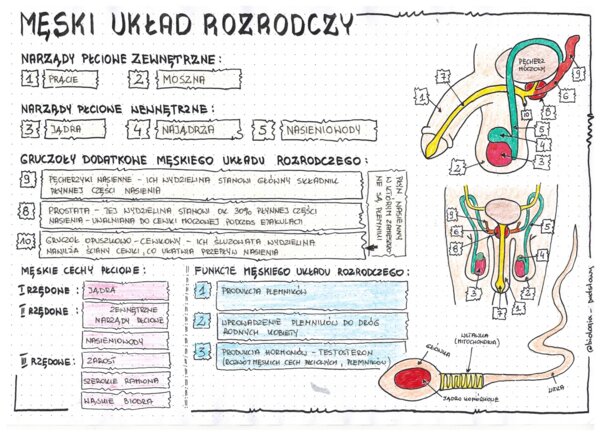 MĘSKI UKŁAD ROZRODCZY
NARZĄDY PŁCIOWE ZEWNĘTRZNE:
1 PRĄCIE 2 MOSZNA
NARZĄDY PŁCIOWE WEWNĘTRZNE:
3 JĄDRA 4 NAJĄDRZA 5 NASIENIOWODY
GRUCZOŁY DODATKOWE MĘSKIEGO UKŁADU ROZRODCZEGO:
9 PĘCHERZYKI NASIENNE - ICH WYDZIELINA STANOWI GŁÓWNY SKŁADNIK
PŁYNNEJ CZĘŚCI NASIENIA
8 PROSTATA - JEJ WYDZIELINA STANOWI OK. 30% PŁYNNEJ CZĘŚCI
NASIENIA - UWALNIANA DO CEWKI MOCZOWEJ PODCZAS EJAKULACJI
10 GRUCZOŁ OPUSZKOWO-CEWKOWY - ICH ŚLUZOWATA WYDZIELINA
NAWILŻA ŚCIANY CEWKI, CO UŁATWIA PRZEPŁYW NASIENIA
PŁYN NASIENNY
W KTÓRYM ZAWIESZO
NE SĄ PLEMNIKI
MĘSKIE CECHY PŁCIOWE:
I RZĘDOWE: JĄDRA
II RZĘDOWE: ZEWNĘTRZNE
NARZĄDY PŁCIOWE
NASIENIOWODY
III RZĘDOWE: ZAROST
SZEROKIE RAMIONA
WĄSKIE BIODRA
FUNKCJE MĘSKIEGO UKŁADU ROZRODCZEGO:
1 PRODUKCJA PLEMNIKÓW
2 WPROWADZENIE PLEMNIKÓW DO DRÓG
RODNYCH KOBIETY
3 PRODUKCJA HORMONÓW - TESTOSTERON
(ROZWÓJ MĘSKICH CECH PŁCIOWYCH, PLEMNIKÓW)
PĘCHERZ
MOCZOWY
1
7
9
6
8
10
5
4
3
2
9
6
8
5
6
8
4
3
2
7
1
GŁÓWKA
WSTAWKA
(MITOCHONDRIA)
JĄDRO KOMÓRKOWE
WITKA
@biologia_podstawy